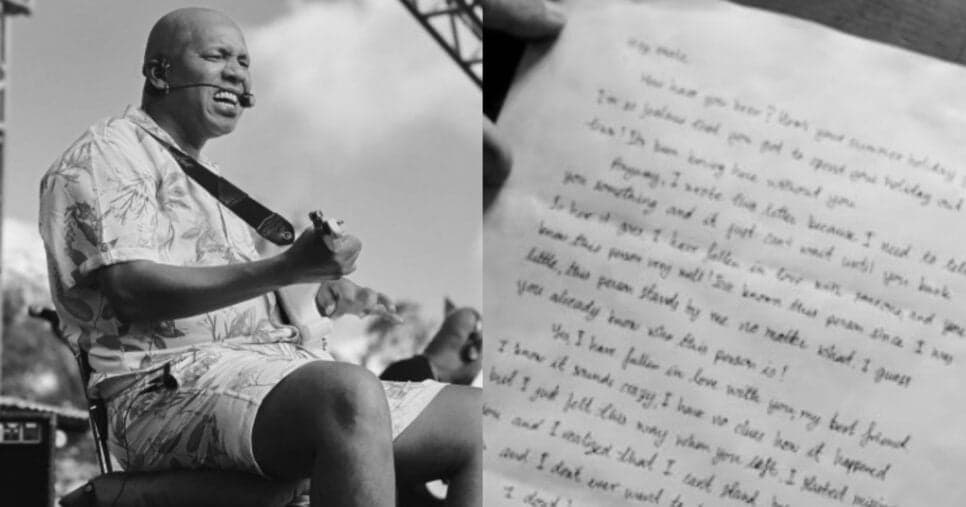 Hey
How have you been? How's your summer holiday
I'm so jealous that you got to spend your holiday out
I've been boring here without you
Anyway, I wrote this letter because I need to tell
you something and it just can't wait until you back
I have fallen in love with someone, and you
know this person very well! I've known this person since I was
little, this person stands by me no matter what. I guess
you already know who this person is!
Yes I have fallen in love with you, my best friend
I know it sounds crazy, I have no clues how it happened
but I just felt this way when you left. I started
and I realized that I can't stand
and I don't ever want to
I don't